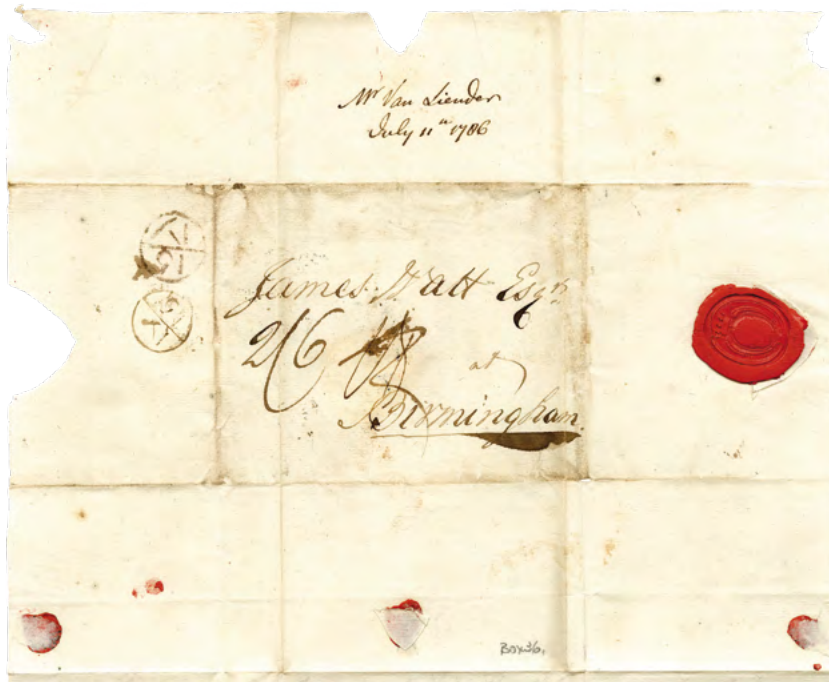 Mr Van Liender
July 11th 1786
James Watt Esqr
2/6
at
Birmingham.
Box 36.